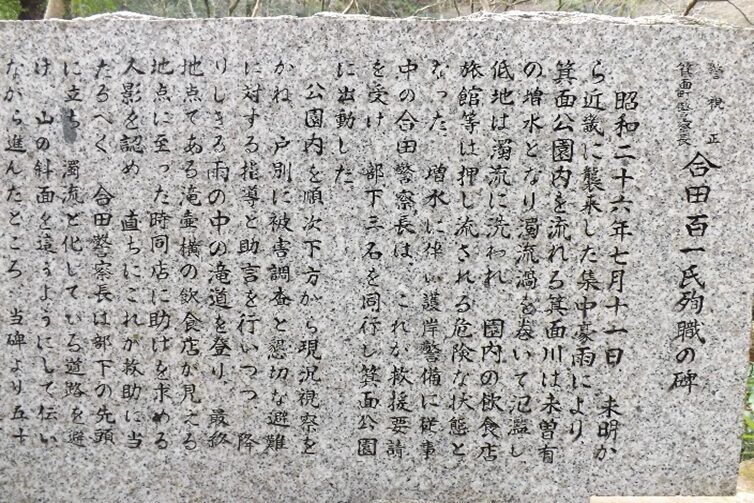 警視正
箕面町警察長
合田百一氏殉職の碑
昭和二十六年七月十一日 未明か
ら近畿に襲来した集中豪雨により
箕面公園内を流れる箕面川は未曽有
の増水となり濁流渦を巻いて氾濫し
低地は濁流に洗われ 園内の飲食店
旅館等は押し流される危険な状態と
なった 増水に伴い護岸警備に従事
中の合田警察長は これが救援要請
を受け 部下三名を同行し箕面公園
に出動した
公園内を順次下方から現況視察を
かね 戸別に被害調査と懇切な避難
に対する指導と助言を行いつつ 降
りしきる雨の中の滝道を登り 最終
地点である滝壷横の飲食店が見える
地点に至った時同店に助けを求める
人影を認め 直ちにこれが救助に当
たるべく 合田警察長は部下の先頭
に立ち 濁流と化している道路を避
け 山の斜面を這うようにして伝い
ながら進んだところ 当碑より五十